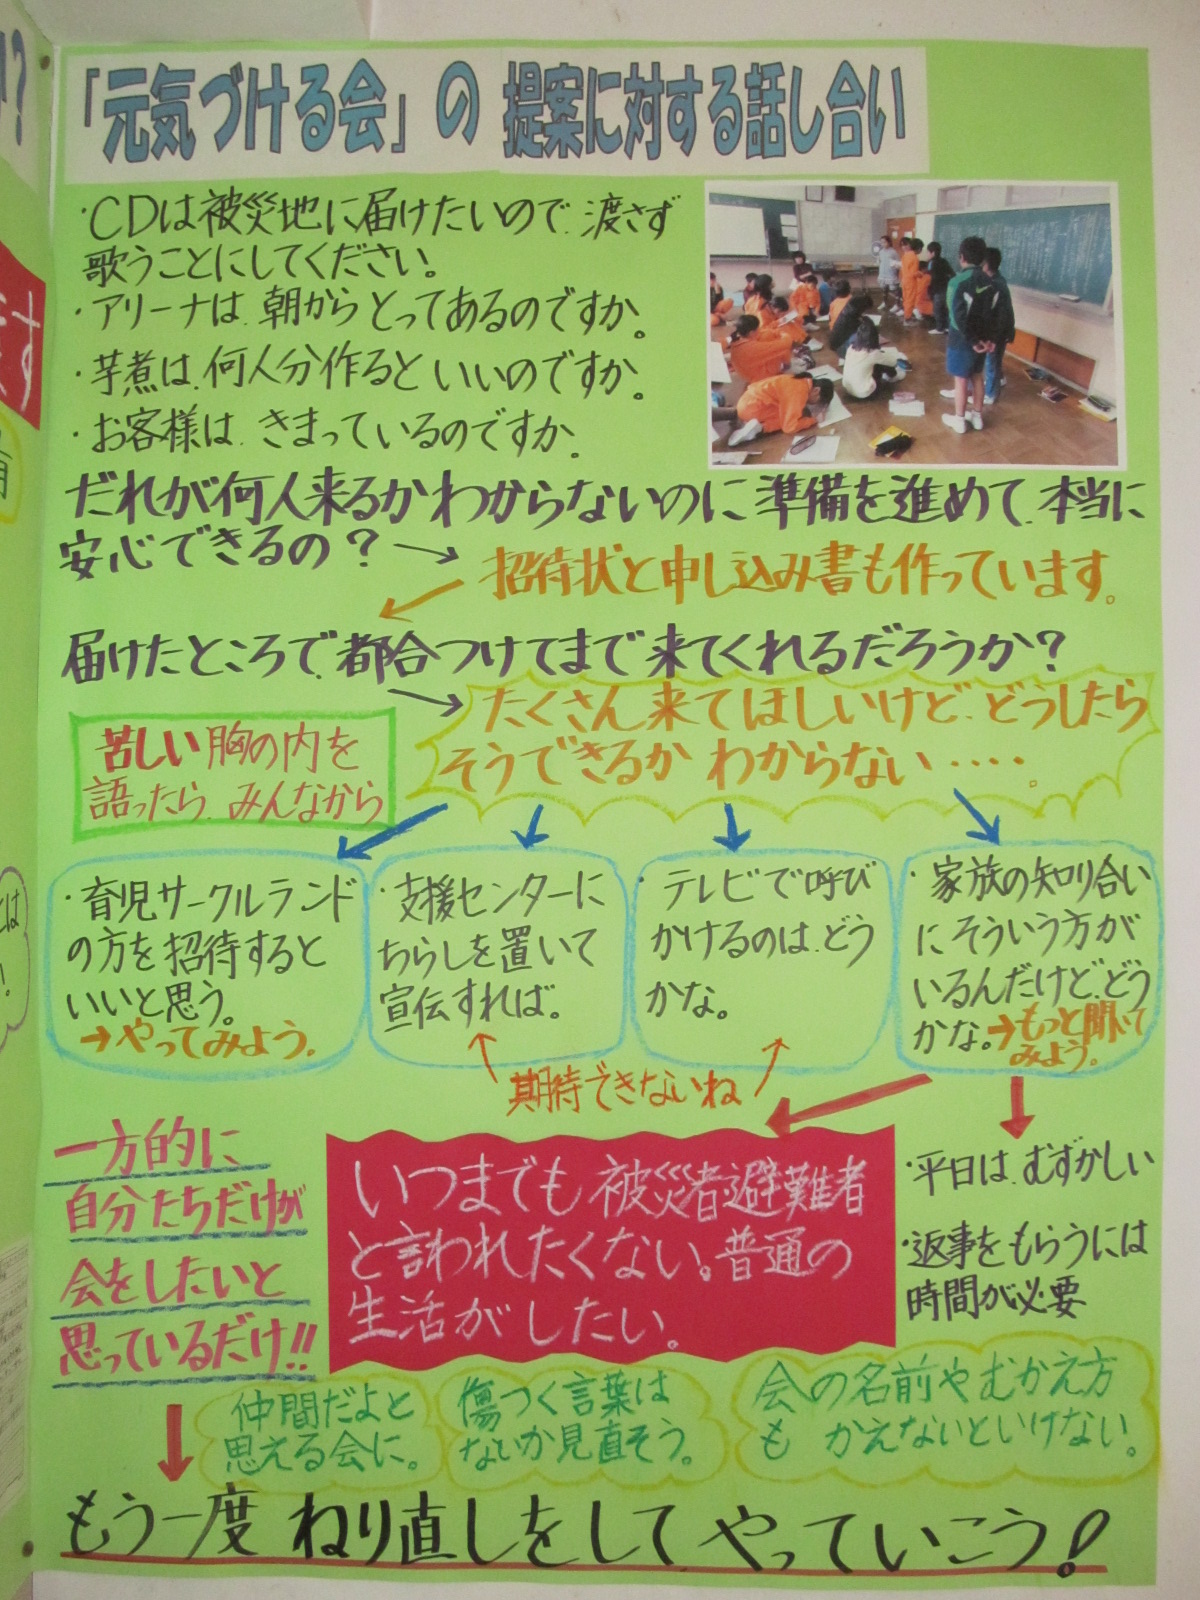 「元気づける会」の 提案に対する話し合い
・CDは被災地に届けたいので、渡さず
歌うことにしてください。
・アリーナは、朝からとってあるのですか。
・芋煮は、何人分作るといいのですか。
・お客様は、きまっているのですか。
だれが何人来るかわからないのに準備を進めて、本当に
安心できるの？→
招待状と申し込み書も作っています。
届けたところで、都合つけてまで来てくれるだろうか？
→たくさん来てほしいけど、どうしたら
そうできるか わからない‥‥。
苦しい胸の内を
語ったら、みんなから
・育児サークルランド
の方を招待すると
いいと思う。
→やってみよう。
・支援センターに
ちらしを置いて
宣伝すれば。
・テレビで呼び
かけるのは、どう
かな。
・家族の知り合い
にそういう方が
いるんだけど、どう
かな。→もっと聞いて
みよう。
期待できないね
一方的に
自分たちだけが
会をしたいと
思っているだけ!!
いつまでも被災者避難者
と言われたくない。普通の
生活がしたい。
・平日は、むずかしい
・返事をもらうには
時間が必要
仲間だよと
思える会に。
傷つく言葉は
ないか見直そう。
会の名前やむかえ方
も かえないといけない。
もう一度 ねり直しをして やっていこう!